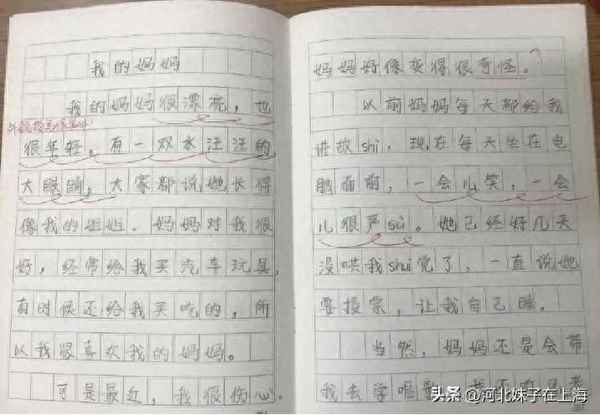 我的妈妈
我的妈妈很漂亮，也
很年轻，有一双水汪汪的
大眼睛，大家都说她长得
像我的姐姐。妈妈对我很
好，经常给我买汽车玩具，
有时候还给我买吃的，所
以我很喜欢我的妈妈。
可是最近，我很伤心。
妈妈好像变得很奇怪。
以前妈妈每天都给我
讲故shi，现在每天坐在电
脑面前，一会儿笑，一会
儿很严sù。她已经好几天
没哄我shuì觉了，一直说她
要投票，让我自己睡。
当然，妈妈还是会带
我去学唱歌
头条 @河北妹子在上海